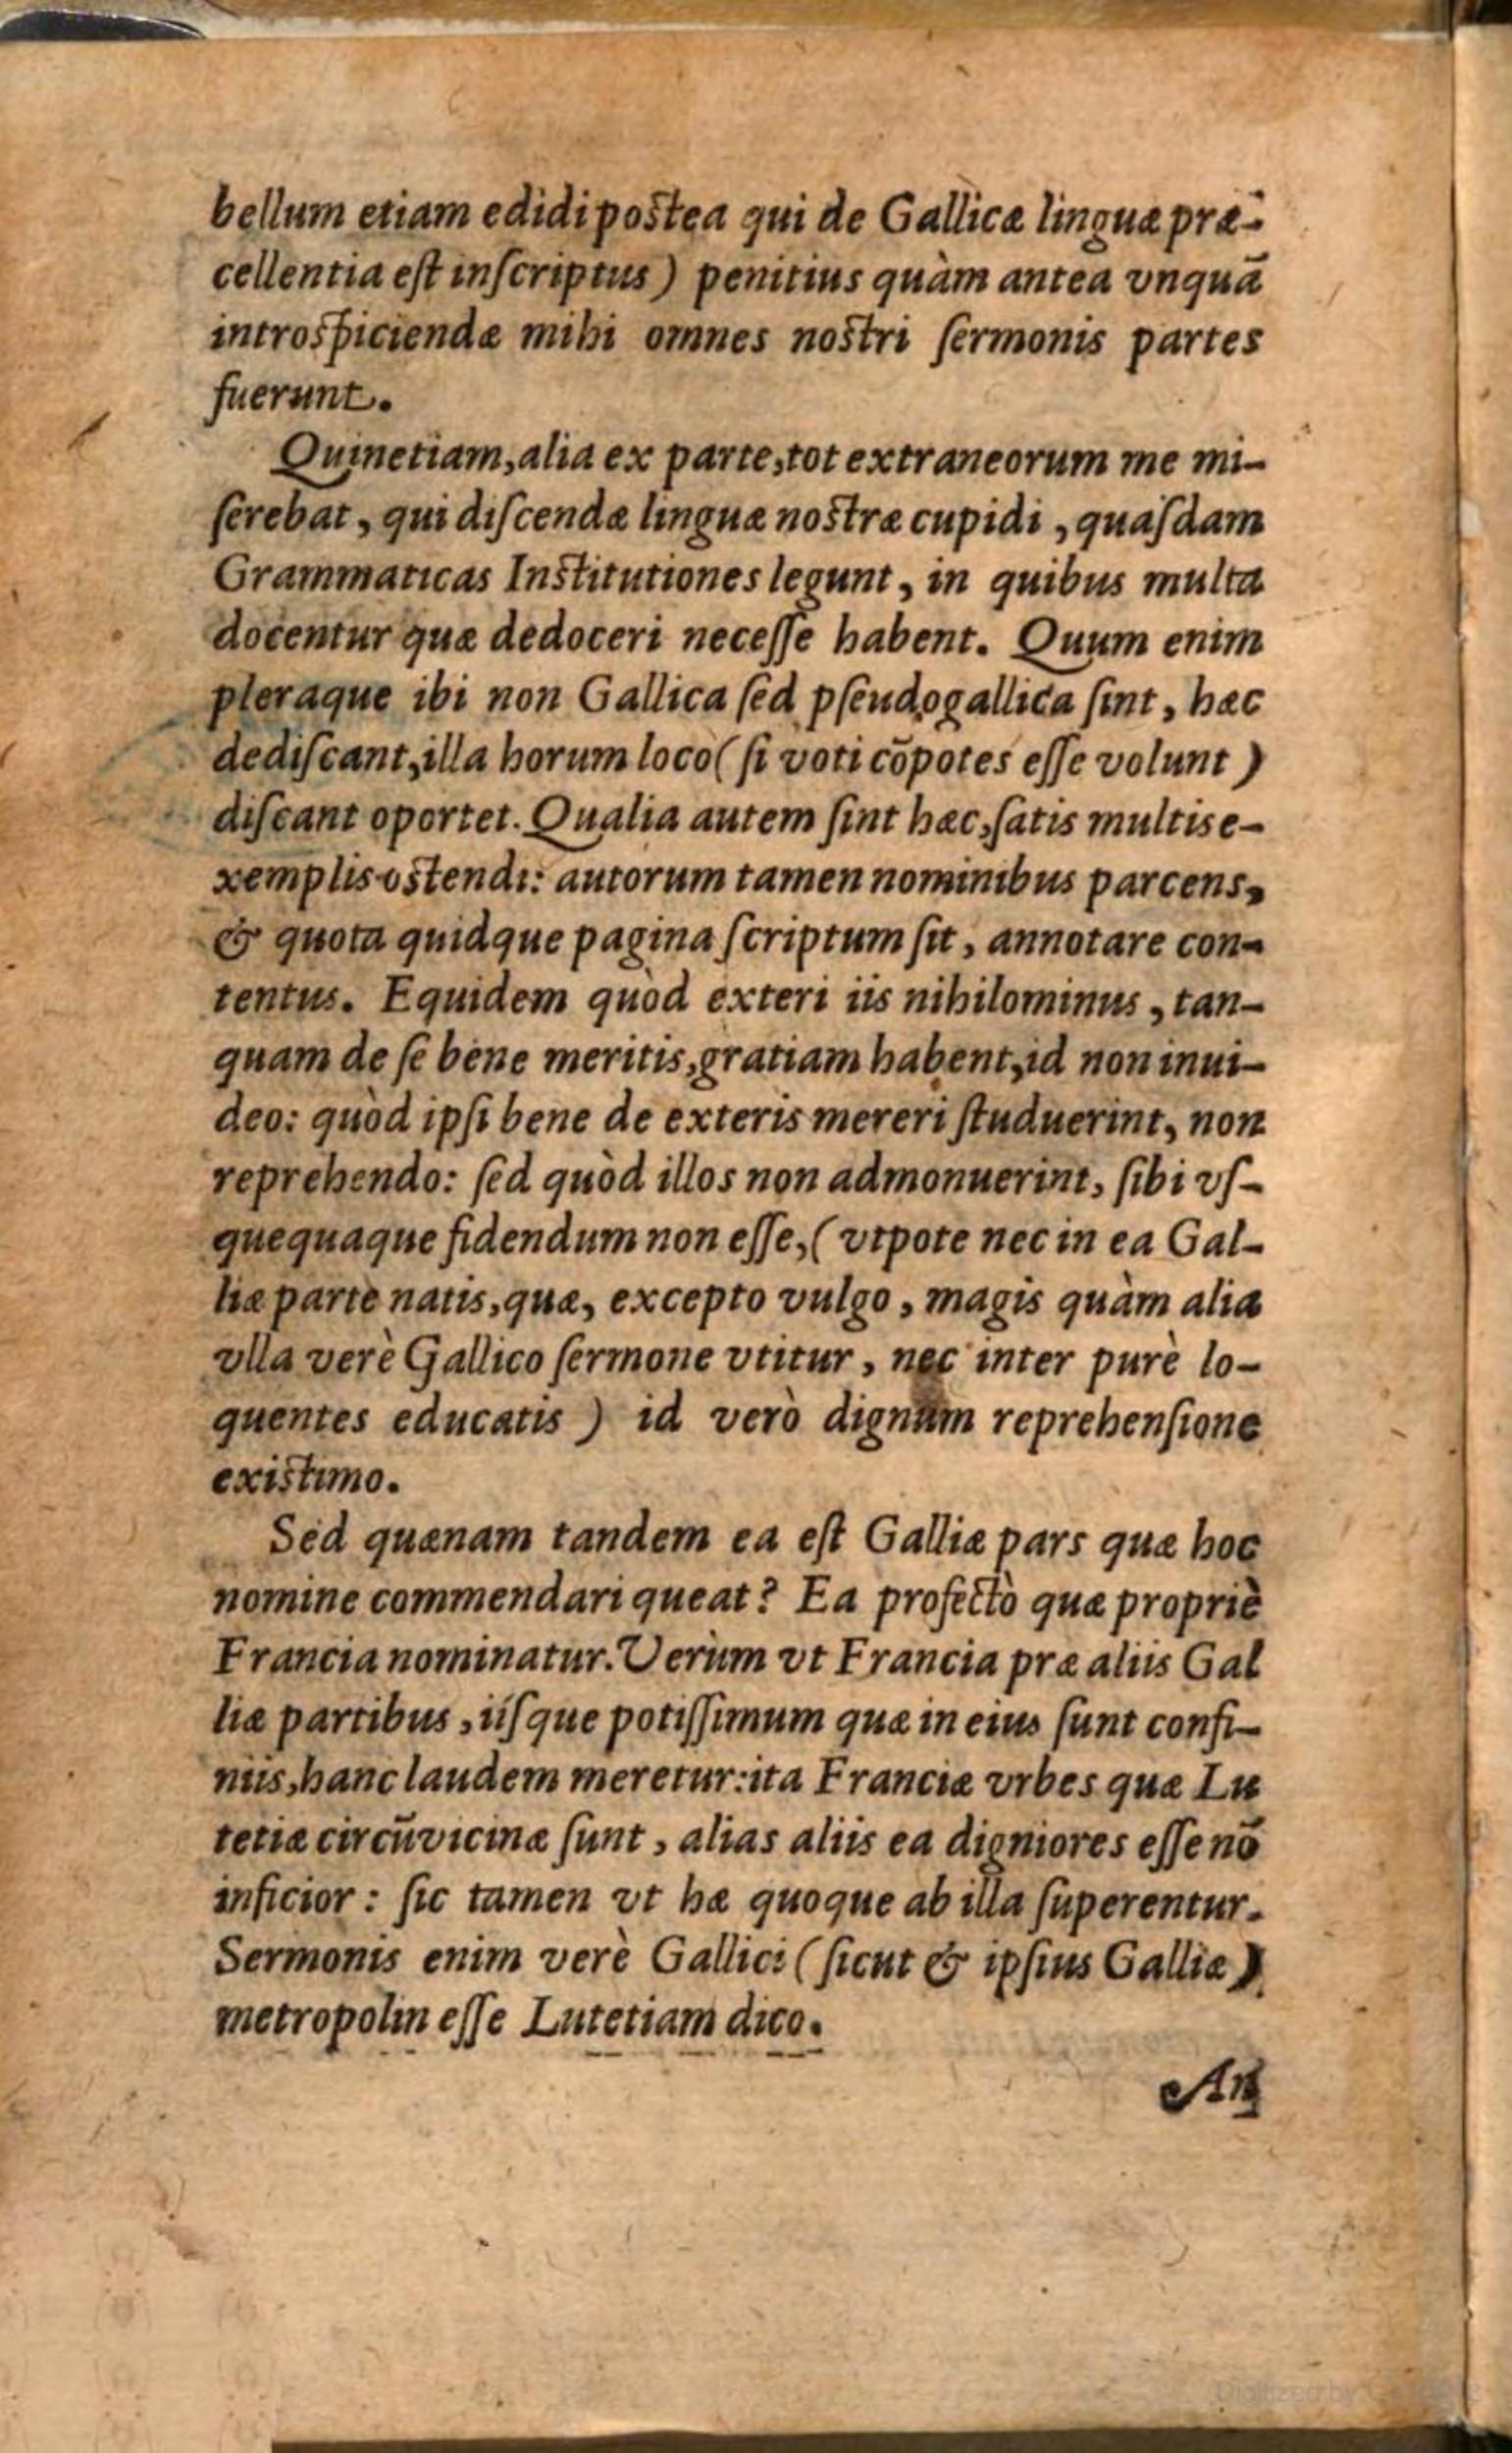 bellum etiam edidi postea qui de Gallicæ linguæ præ-
cellentia est inſcriptus) penitius quàm antea vnquā
introſpiciendæ mihi omnes nostri ſermonis partes
fuerunt.
Quinetiam, alia ex parte, tot extraneorum me mi-
ſerebat, qui diſcendæ linguæ nostræ cupidi, quaſdam
Grammaticas Institutiones legunt, in quibus multa
docentur quæ dedoceri neceſſe habent. Quum enim
pleraque ibi non Gallica ſed pſeudogallica ſint, hæc
dediſcant, illa horum loco (ſi voti cōpotes eſſe volunt)
diſcant oportet. Qualia autem ſint hæc, ſatis multis e-
xemplis ostendi: autorum tamen nominibus parcens,
& quota quidque pagina ſcriptum ſit, annotare con-
tentus. Equidem quòd exteri iis nihilominus, tan-
quam de ſe bene meritis, gratiam habent, id non inui-
deo: quòd ipſi bene de exteris mereri ſtuduerint, non
reprehendo: ſed quòd illos non admonuerint, ſibi vſ-
quequaque fidendum non eſſe, (vtpote nec in ea Gal-
liæ parte natis, quæ, excepto vulgo, magis quàm alia
vlla verè Gallico ſermone vtitur, nec inter purè lo-
quentes educatis) id verò dignum reprehenſione
existimo.
Sed quænam tandem ea eſt Galliæ pars quæ hoc
nomine commendari queat? Ea profectò quæ propriè
Francia nominatur. Verùm vt Francia præ aliis Gal
liæ partibus, iíſque potiſſimum quæ in eius ſunt confi-
niis, hanc laudem meretur: ita Franciæ vrbes quæ Lu
tetiæ circūvicinæ ſunt, alias aliis ea digniores eſſe nō
inficior: ſic tamen vt hæ quoque ab illa ſuperentur.
Sermonis enim verè Gallici (ſicut & ipſius Galliæ)
metropolin eſſe Lutetiam dico.
An
Digitized by Google